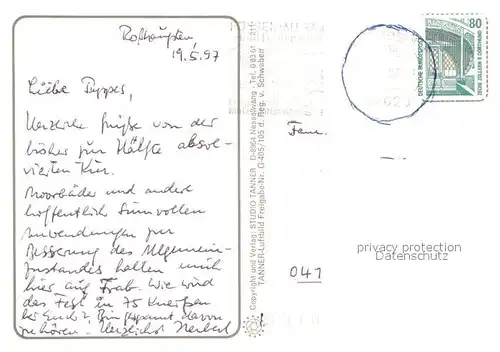 Roßhaupten,
19.5.97
Liebe Puppes,
Herzliche Grüße von der
bisher zur Hälfte absol-
vierten Kur.
Moorbäder und andere
hoffentlich sinnvollen
Anwendungen zur
Besserung des Allgemein-
zustandes halten mich
hier auf Trab. Wie wird
das Fest in 75
bei Euch? Bin gespannt davon
zu hören. Herzlichst Herbert
Copyright und Verlag: STUDIO TANNER D-8964 Nesselwang Tel. 0 83 61
TANNER-Luftbild Freigabe-Nr. G-405/105 d. Reg. v. Schwaben
80
DEUTSCHE BUNDESPOST
ZECHE ZOLLERN II DORTMUND
Fam.
privacy protection
Datenschutz
041